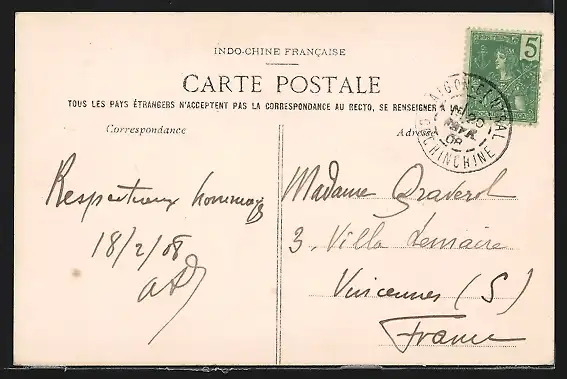 INDO-CHINE FRANÇAISE
CARTE POSTALE
TOUS LES PAYS ÉTRANGERS N'ACCEPTENT PAS LA CORRESPONDANCE AU RECTO, SE RENSEIGNER A
Correspondance
Adresse
5
SAIGON CENTRAL
COCHINCHINE
08
Respectueux hommages
18/2/08
Madame Graverol
3, Villa Lemaire
Vincennes (S)
France